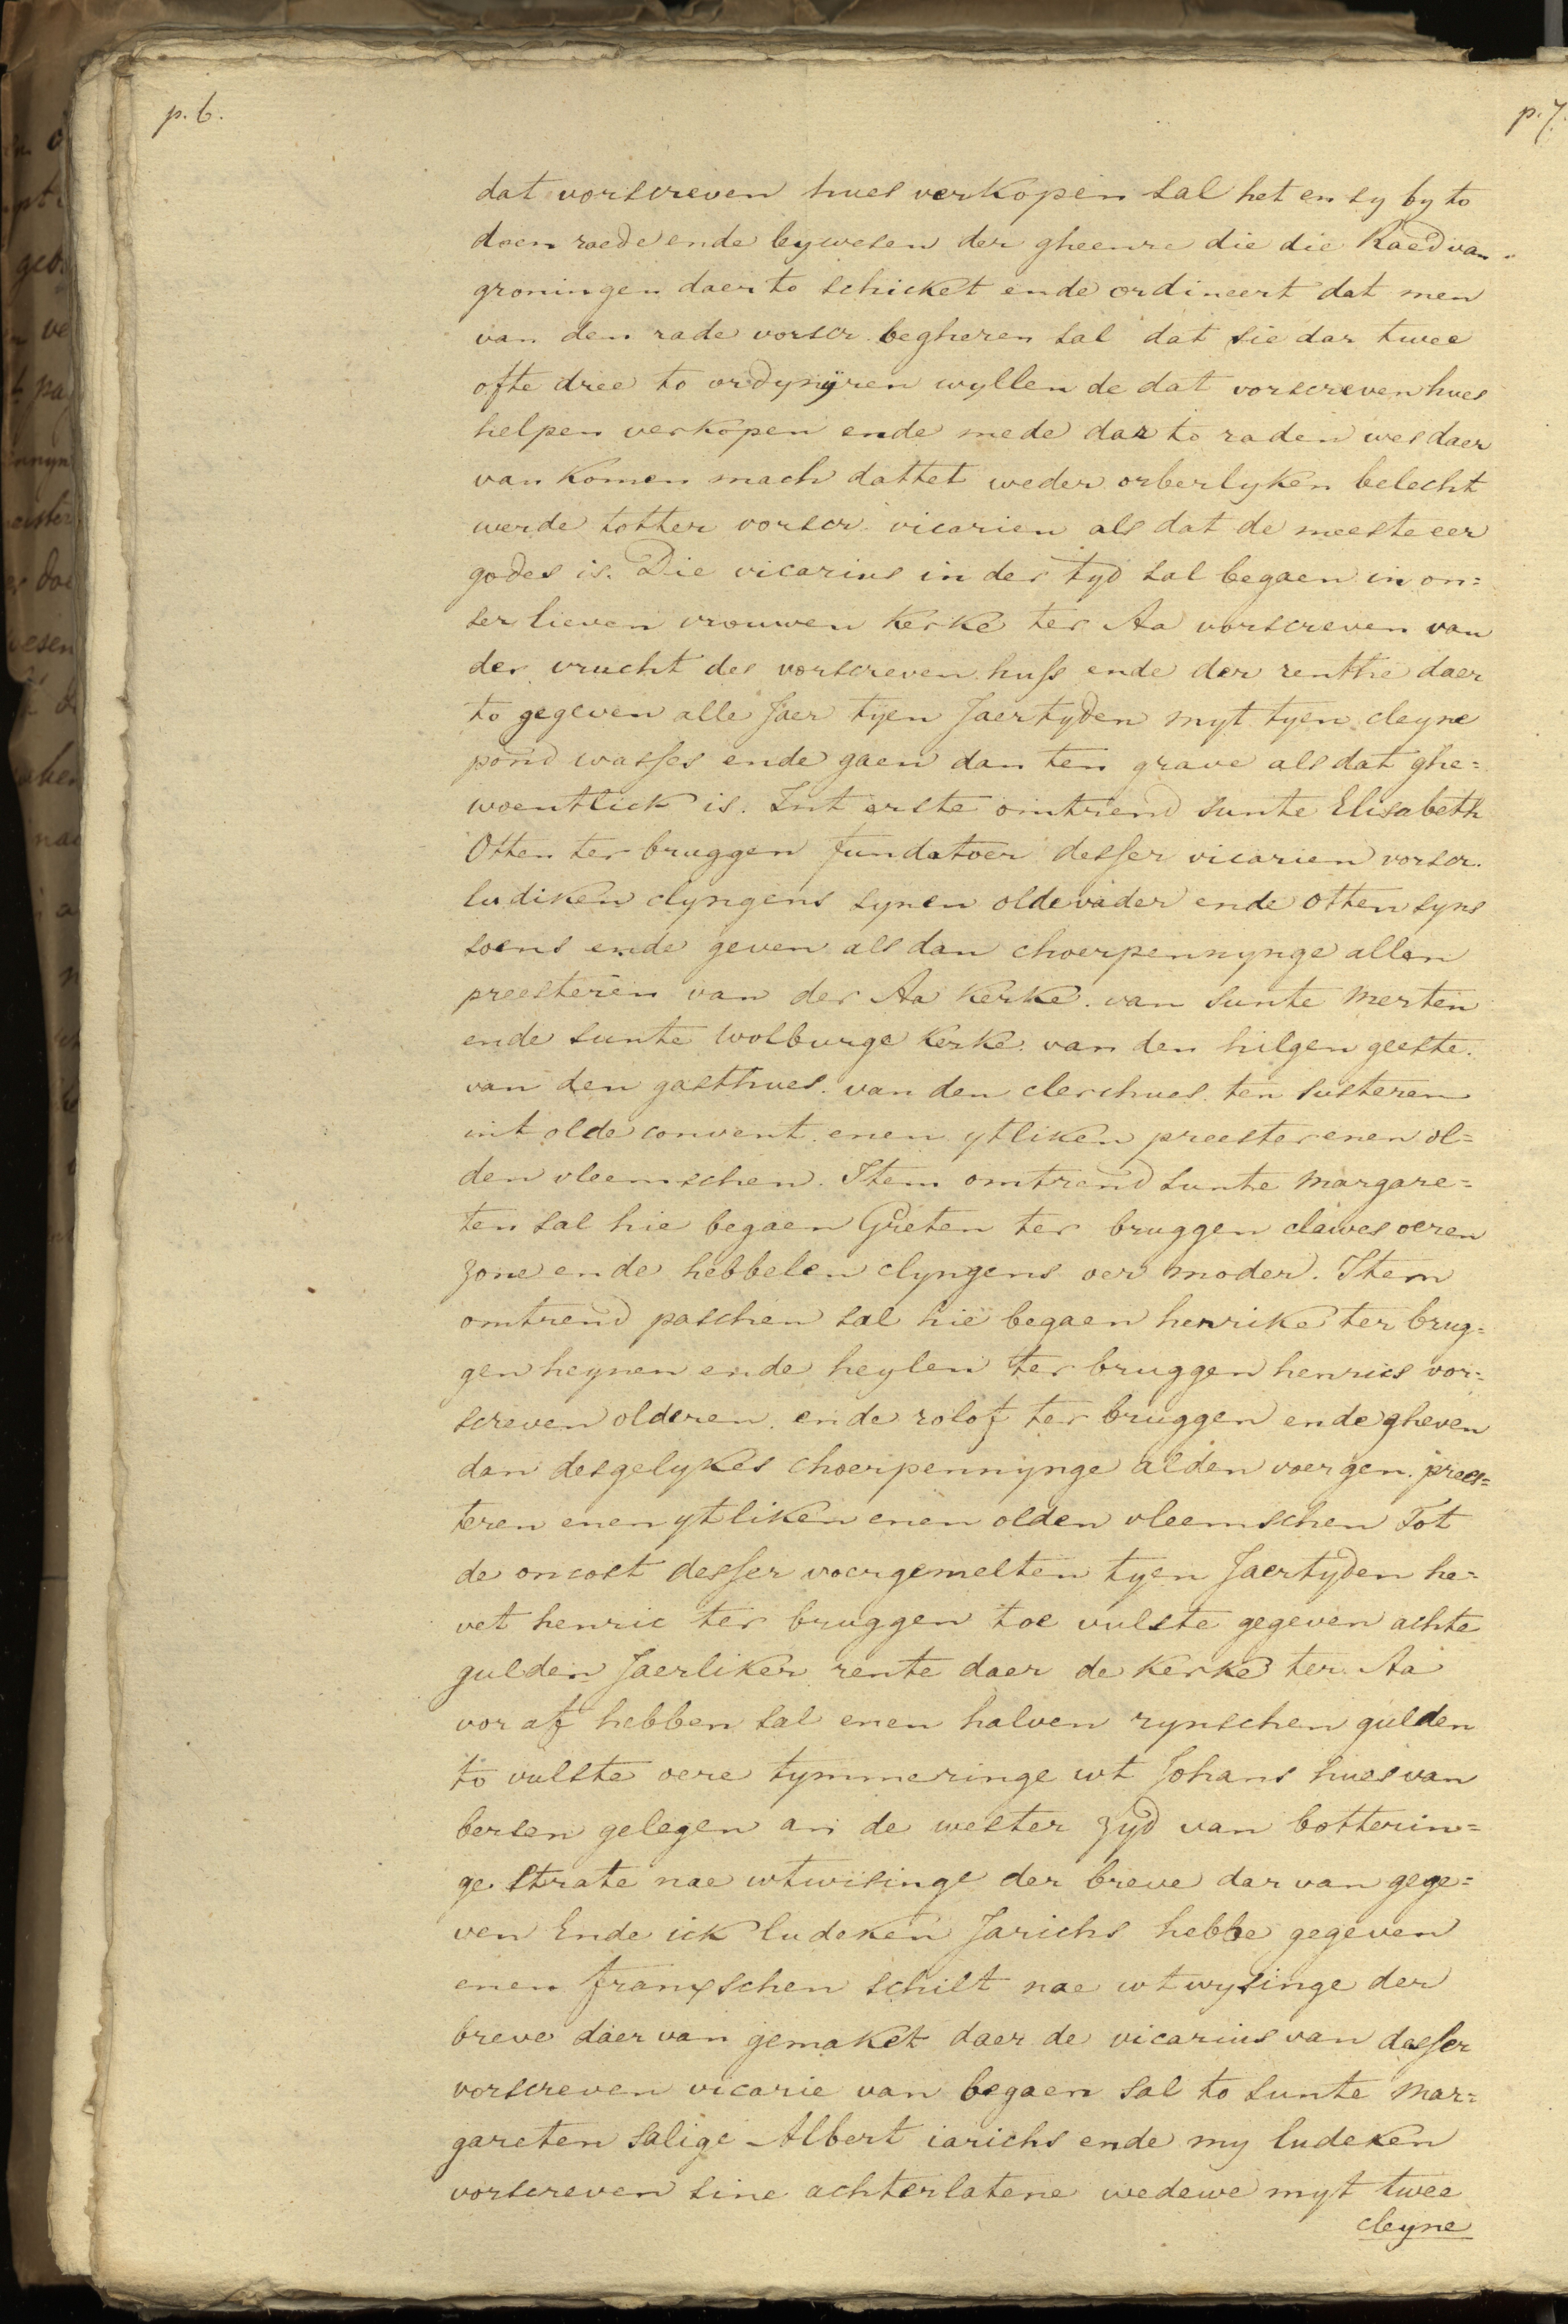 p. 6.
p. 7.
dat vorscreven hues verkopen sal het en sy by to
doen raede ende bywesen der gheenre die die Raed van
groningen daer to schicket ende ordineert dat men
van den rade vorscr. begheren sal dat sie dar twee
ofte dree to ordynyren wyllen de dat vorscreven hues
helpen verkopen ende mede dar to raden wes daer
van komen mach dattet weder orberlyken belecht
werde totter vorscr. vicarien als dat de meeste eer
godes is. Die vicarius in der tyd sal begaen in on=
ser lieven vrouwen kerke ter Aa vorscreven van
der vrucht des vorscreven huss ende der renthe daer
to gegeven alle Jaer tyen Jaertyden myt tyen cleyne
pond wasses ende gaen dan ten grave als dat ghe=
woentlick is. Int erste omtrend sunte Elisabeth
Otten ter bruggen fundatoer desser vicarien vorscr.
ludiken clyngens synen oldevader ende otten syns
soens ende geven als dan choerpennynge allen
preesteren van der Aa kerke. van sunte Merten
ende sunte Wolburge kerke. van den hilgen geeste.
van den gasthues. van den clerchues. ten susteren
int olde convent. enen ytliken preester enen ol=
den vleemschen. Item omtrend sunte Margare=
ten sal hie begaen Grieten ter bruggen clawes oeren
zone ende hebbelen clyngens oer moder. Item
omtrend paschen sal hie begaen henrike ter brug=
gen heynen ende heylen ter bruggen henrics vor=
screven olderen. ende rolof ter bruggen ende gheven
dan desgelykes choerpennynge alden voergen. prees=
teren enen ytliken enen olden vleemschen Tot
de oncost desser voergemelten tyen Jaertyden he=
vet henric ter bruggen toe vulste gegeven achte
gulden Jaerliker rente daer de kerke ter Aa
vor af hebben sal enen halven rynschen gulden
to vulste oere tymmeringe wt Johans hues van
bersen gelegen an de wester zyd van botterin=
ge strate nae wtwisinge der breve dar van gege=
ven Ende ick ludeken Jarichs hebbe gegeven
enen franxschen schilt nae wtwysinge der
breve daer van gemaket daer de vicarius van desser
vorscreven vicarie van begaen sal to sunte Mar=
gareten salige Albert iarichs ende my ludeken
vorscreven sine achterlatene wedewe myt twee
cleyne